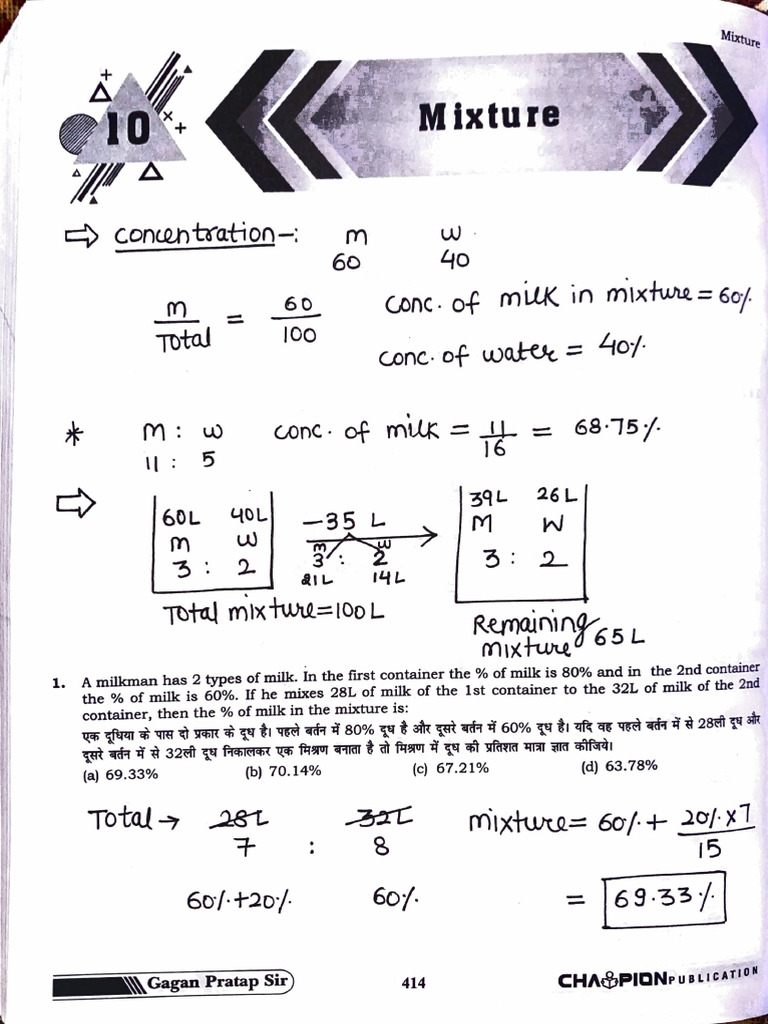 Mixture
10
Mixture
⇒ Concentration -: m w
60 40
m/Total = 60/100 Conc. of milk in mixture = 60%
Conc. of water = 40%
* M : W Conc. of milk = 11/16 = 68.75%
11 : 5
⇒ 60L 40L -35 L 39L 26L
m w m w M W
3 : 2 3 : 2 3 : 2
21L 14L
Total mixture = 100L Remaining mixture 65L
1. A milkman has 2 types of milk. In the first container the % of milk is 80% and in the 2nd container
the % of milk is 60%. If he mixes 28L of milk of the 1st container to the 32L of milk of the 2nd
container, then the % of milk in the mixture is:
एक दूधिया के पास दो प्रकार के दूध है। पहले बर्तन में 80% दूध है और दूसरे बर्तन में 60% दूध है। यदि वह पहले बर्तन में से 28ली दूध और
दूसरे बर्तन में से 32ली दूध निकालकर एक मिश्रण बनाता है तो मिश्रण में दूध की प्रतिशत मात्रा ज्ञात कीजिये।
(a) 69.33% (b) 70.14% (c) 67.21% (d) 63.78%
Total → 28L 32L mixture = 60% + 20% × 7/15
7 : 8
60% + 20% 60% = 69.33%
Gagan Pratap Sir 414 CHAMPION PUBLICATION